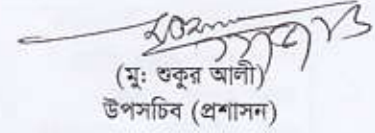 (মু: শুকুর আলী)
উপসচিব (প্রশাসন)